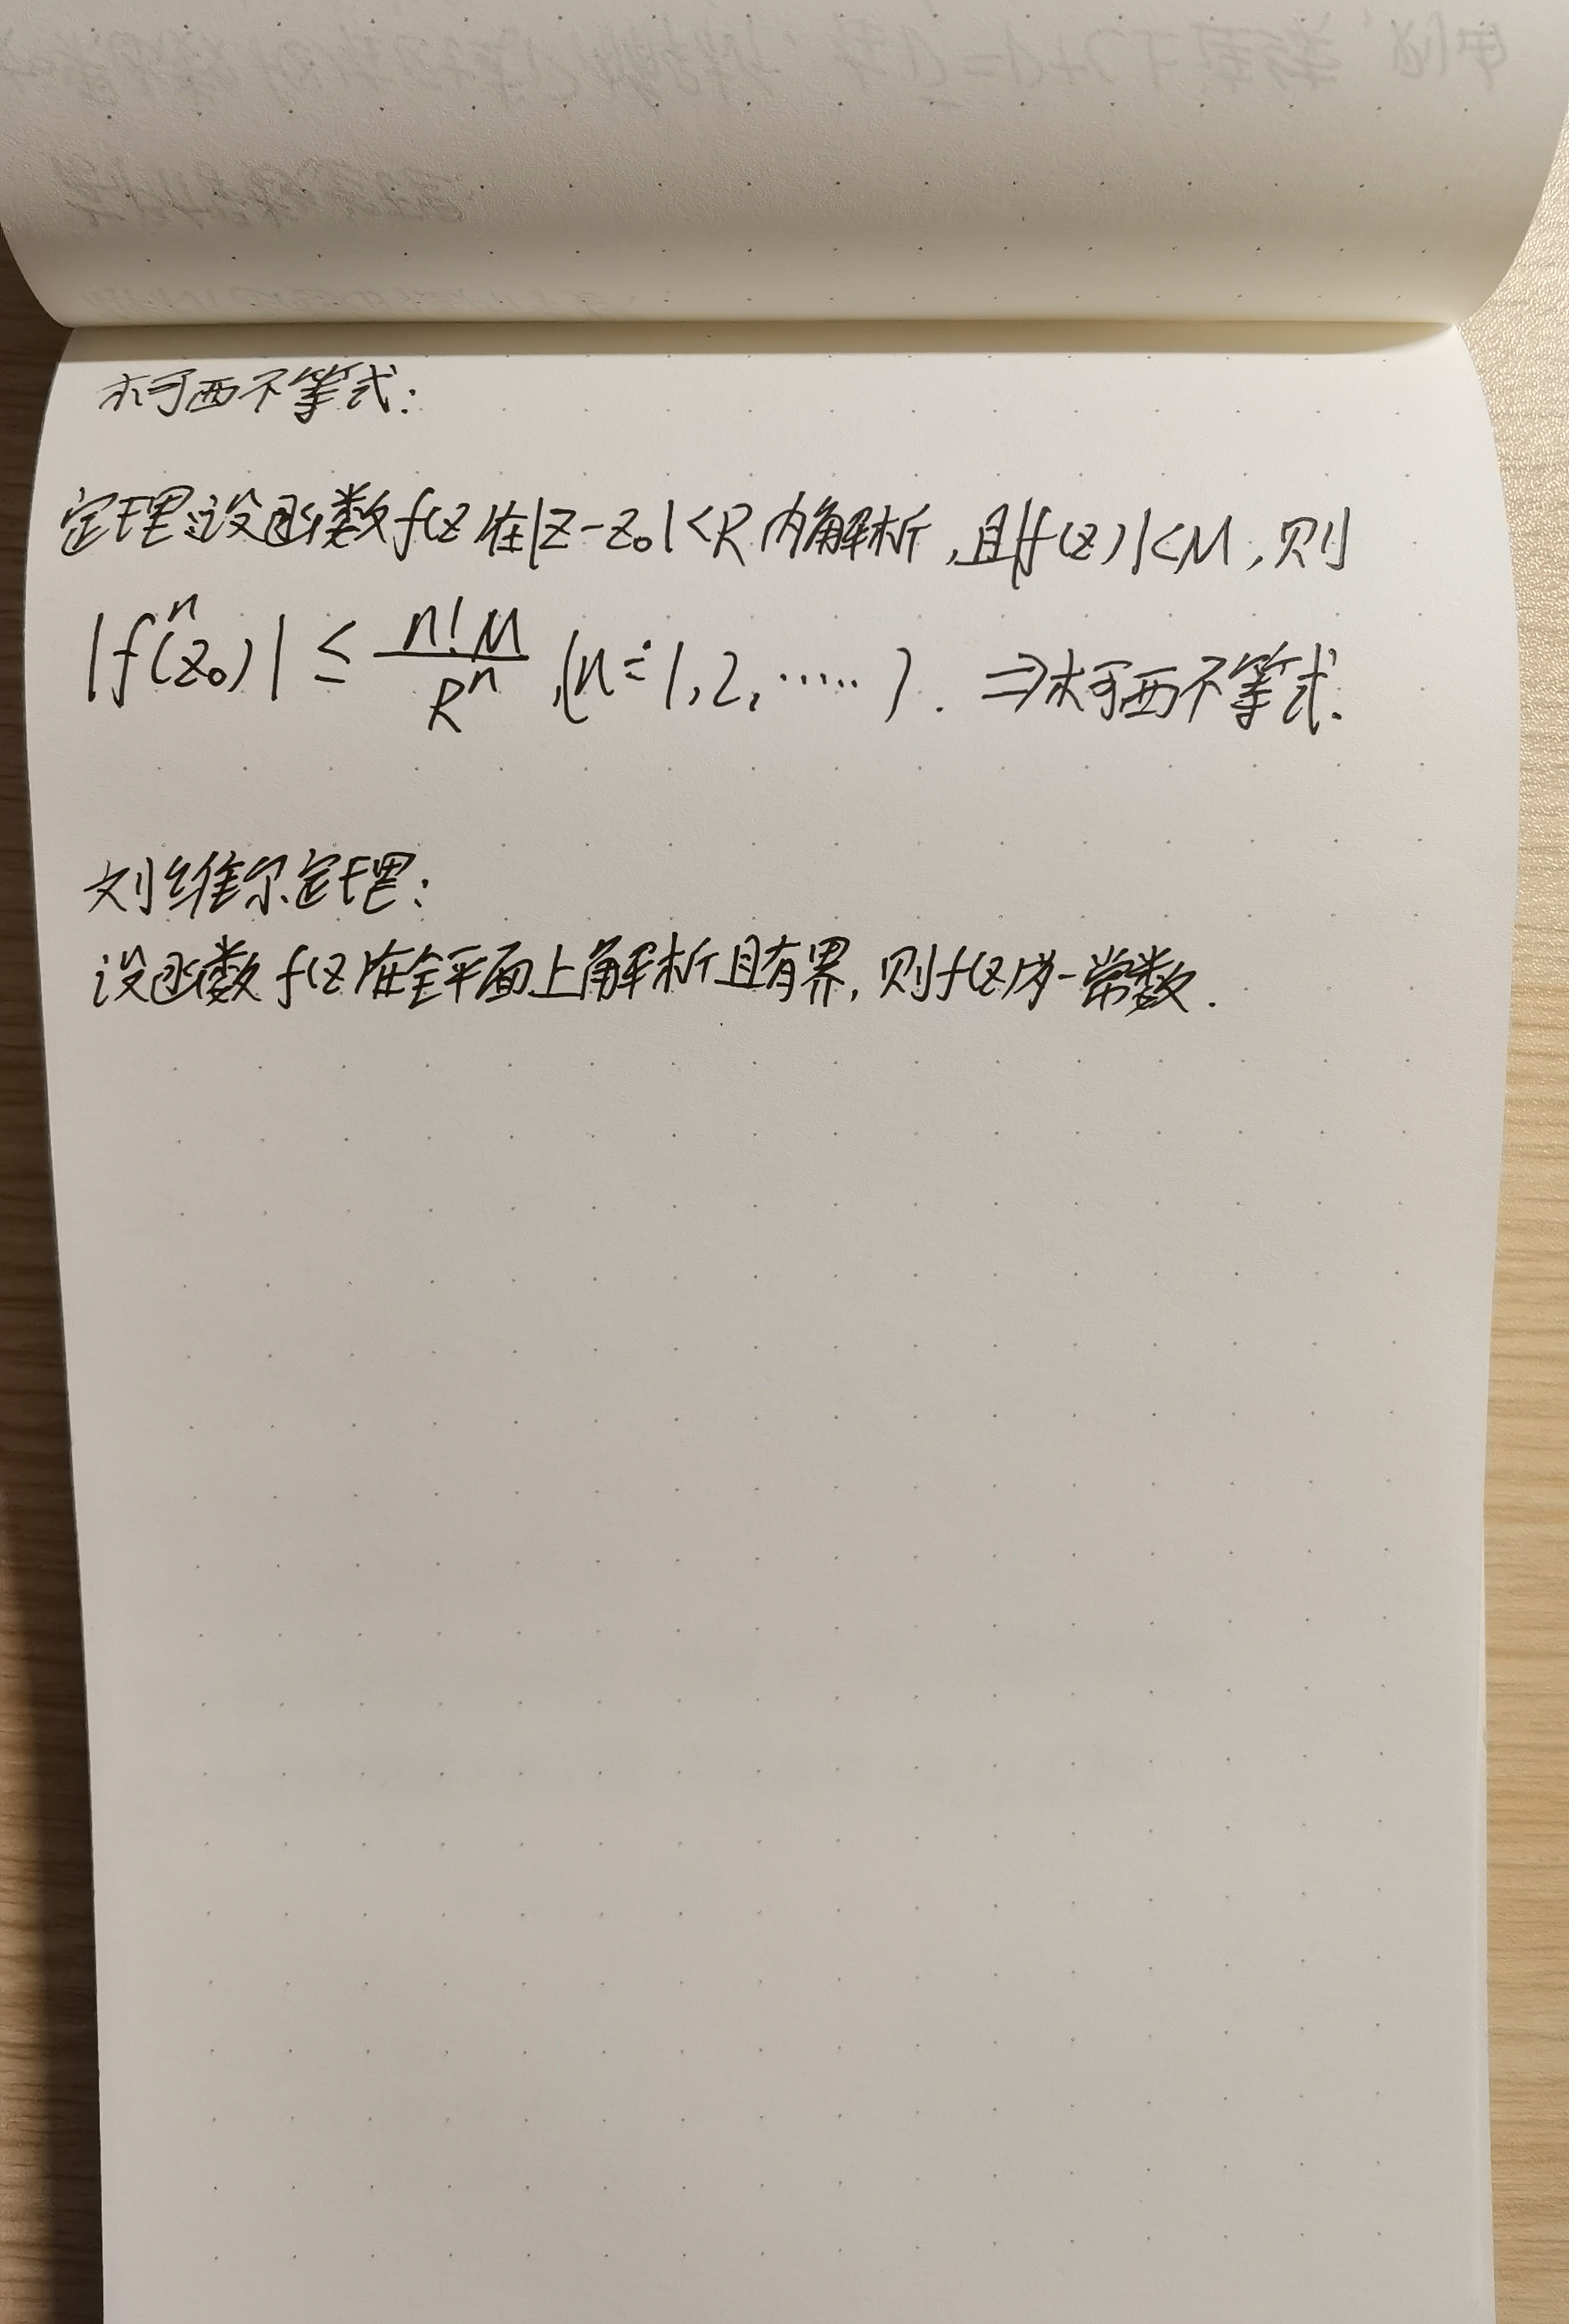 柯西不等式:
定理:设函数f(z)在|z-z₀|<R内解析,且|f(z)|<M,则
|fⁿ(z₀)| ≤ n!M/Rⁿ,(n=1,2,……). ⇒柯西不等式.
刘维尔定理:
设函数f(z)在全平面上解析且有界,则f(z)为一常数.